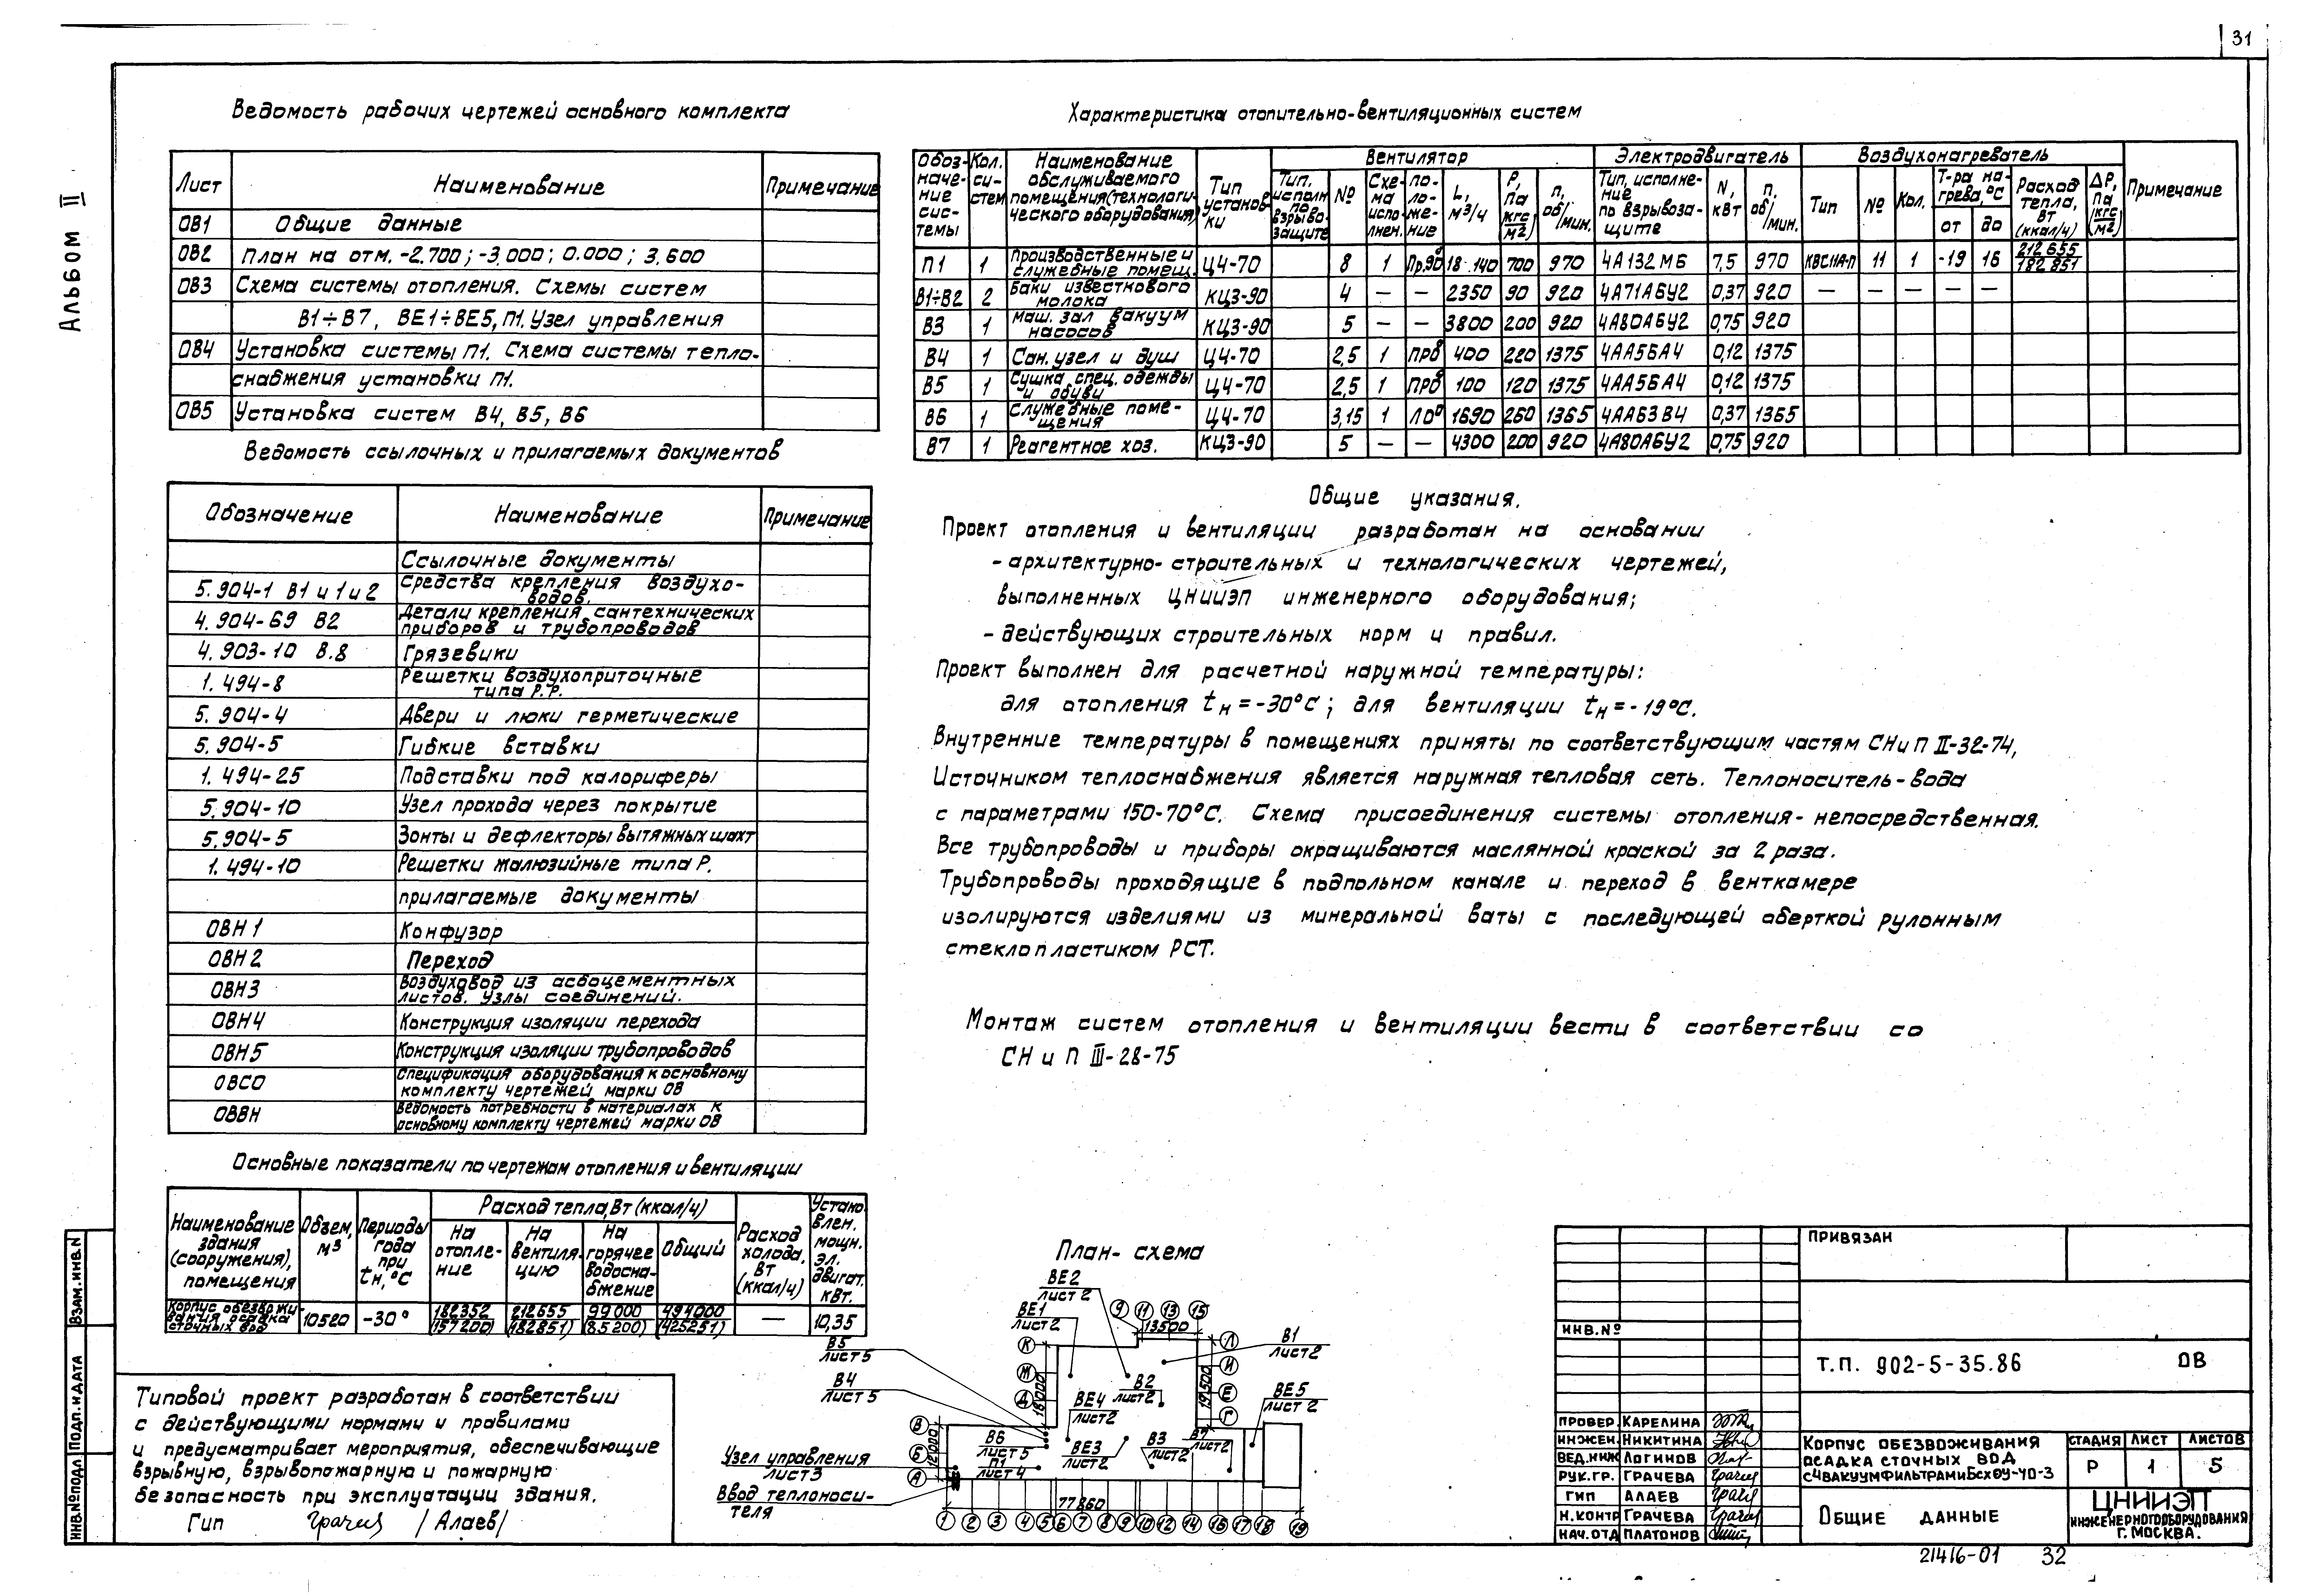 31
Альбом II
Ведомость рабочих чертежей основного комплекта
Лист Наименование Примечание
ОВ1 Общие данные
ОВ2 План на отм. -2.700; -3.000; 0.000; 3.600
ОВ3 Схема системы отопления. Схемы систем
В1÷В7, ВЕ1÷ВЕ5, П1. Узел управления
ОВ4 Установка системы П1. Схема системы тепло-
снабжения установки П1.
ОВ5 Установка систем В4, В5, В6
Ведомость ссылочных и прилагаемых документов
Обозначение Наименование Примечание
Ссылочные документы
5.904-1 В1 и 1 и 2 Средства крепления воздухо-
водов.
4.904-69 В2 Детали крепления сантехнических
приборов и трубопроводов
4.903-10 В.8 Грязевики
1.494-8 Решетки воздухоприточные
типа Р.Р.
5.904-4 Двери и люки герметические
5.904-5 Гибкие вставки
1.494-25 Подставки под калориферы
5.904-10 Узел прохода через покрытие
5.904-5 Зонты и дефлекторы вытяжных шахт
1.494-10 Решетки жалюзийные типа Р.
прилагаемые документы
ОВН1 Конфузор
ОВН2 Переход
ОВН3 Воздуховод из асбоцементных
листов. Узлы соединений.
ОВН4 Конструкция изоляции перехода
ОВН5 Конструкция изоляции трубопроводов
ОВСО Спецификация оборудования к основному
комплекту чертежей марки ОВ
ОВВН Ведомость потребности в материалах к
основному комплекту чертежей марки ОВ
Основные показатели по чертежам отопления и вентиляции
Наименование здания (сооружения), помещения
Объем, м3
Периоды года при tн, °С
Расход тепла, Вт (ккал/ч)
На отопле-ние
На вентиля-цию
На горячее водосна-бжение
Общий
Расход холода, Вт (ккал/ч)
Устано влен. мощн. эл. двигат. кВт.
Корпус обезвожи вания осадка сточных вод 10520 -30° 182352 212655 99000 494000 — 10,35
(157200) (182851) (85200) (425251)
Типовой проект разработан в соответствии
с действующими нормами и правилами
и предусматривает мероприятия, обеспечивающие
взрывную, взрывопожарную и пожарную
безопасность при эксплуатации здания.
Гип /Алаев/
Взам.инв.N
Подп. и дата
Инв.№подл
Характеристика отопительно-вентиляционных систем
Обоз-наче-ние сис-темы
Кол. си-стем
Наименование обслуживаемого помещения (технологи-ческого оборудования)
Тип установ ки
Вентилятор
Тип, исполн по взрыво-защите
№
Схе-ма испо-лнен.
по-ло-же-ние
L, м3/ч
Р, Па кгс/м2
n, об/мин.
Электродвигатель
Тип, исполне-ние по взрывоза-щите
N, кВт
n, об/мин.
Воздухонагреватель
Тип № Кол.
Т-ра на-грева, °С
от до
Расход тепла, Вт (ккал/ч)
ΔР, Па (кгс/м2)
Примечание
П1 1 Производственные и служебные помещ. Ц4-70 8 1 Пр.90 18.140 700 970 4А132М6 7,5 970 КВС11А-П 11 1 -19 16 212655 182851
В1÷В2 2 Баки известкового молока КЦ3-90 4 — — 2350 90 920 4А71А6У2 0,37 920 — — — — —
В3 1 Маш. зал вакуум насосов КЦ3-90 5 — — 3800 200 920 4А80А6У2 0,75 920
В4 1 Сан. узел и душ Ц4-70 2,5 1 ПР0 400 220 1375 4АА56А4 0,12 1375
В5 1 Сушка спец. одежды и обуви Ц4-70 2,5 1 ПР0 100 120 1375 4АА56А4 0,12 1375
В6 1 Служебные поме-щения Ц4-70 3,15 1 Л0° 1690 260 1365 4АА63В4 0,37 1365
В7 1 Реагентное хоз. КЦ3-90 5 — — 4300 200 920 4А80А6У2 0,75 920
Общие указания.
Проект отопления и вентиляции разработан на основании
- архитектурно-строительных и технологических чертежей,
выполненных ЦНИИЭП инженерного оборудования;
- действующих строительных норм и правил.
Проект выполнен для расчетной наружной температуры:
для отопления tн = -30°С; для вентиляции tн = -19°С.
Внутренние температуры в помещениях приняты по соответствующим частям СНиП II-32-74,
Источником теплоснабжения является наружная тепловая сеть. Теплоноситель-вода
с параметрами 150-70°С. Схема присоединения системы отопления- непосредственная.
Все трубопроводы и приборы окрашиваются маслянной краской за 2 раза.
Трубопроводы проходящие в подпольном канале и переход в венткамере
изолируются изделиями из минеральной ваты с последующей оберткой рулонным
стеклопластиком РСТ.
Монтаж систем отопления и вентиляции вести в соответствии со
СНиП III-28-75
План- схема
ВЕ2 лист 2
ВЕ1 лист 2
9 11 13 15
13500
В1 лист 2
В5 лист 5
В4 лист 5
К Ж Д
18000
Л И Е Г
19500
В2 лист 2
ВЕ4 лист 2
ВЕ5 лист 2
В Б А
12000
В6 лист 5
П1 лист 4
ВЕ3 лист 2
В3 лист 2
В7 лист 2
Узел управления
лист 3
Ввод теплоноси-
теля
77860
1 2 3 4 5 6 7 8 9 10 12 14 16 17 18 19
Привязан
Инв.№
Т.П. 902-5-35.86 ОВ
Провер. Карелина
Инжен. Никитина
Вед.инж Логинов
Рук.гр. Грачева
Гип Алаев
Н.контр Грачева
Нач.отд Платонов
Корпус обезвоживания
осадка сточных вод
с 4 вакуумфильтрами БсхОУ-40-3
Стадия Лист Листов
Р 1 5
Общие данные
ЦНИИЭП
инженерного оборудования
г. Москва.
21416-01 32